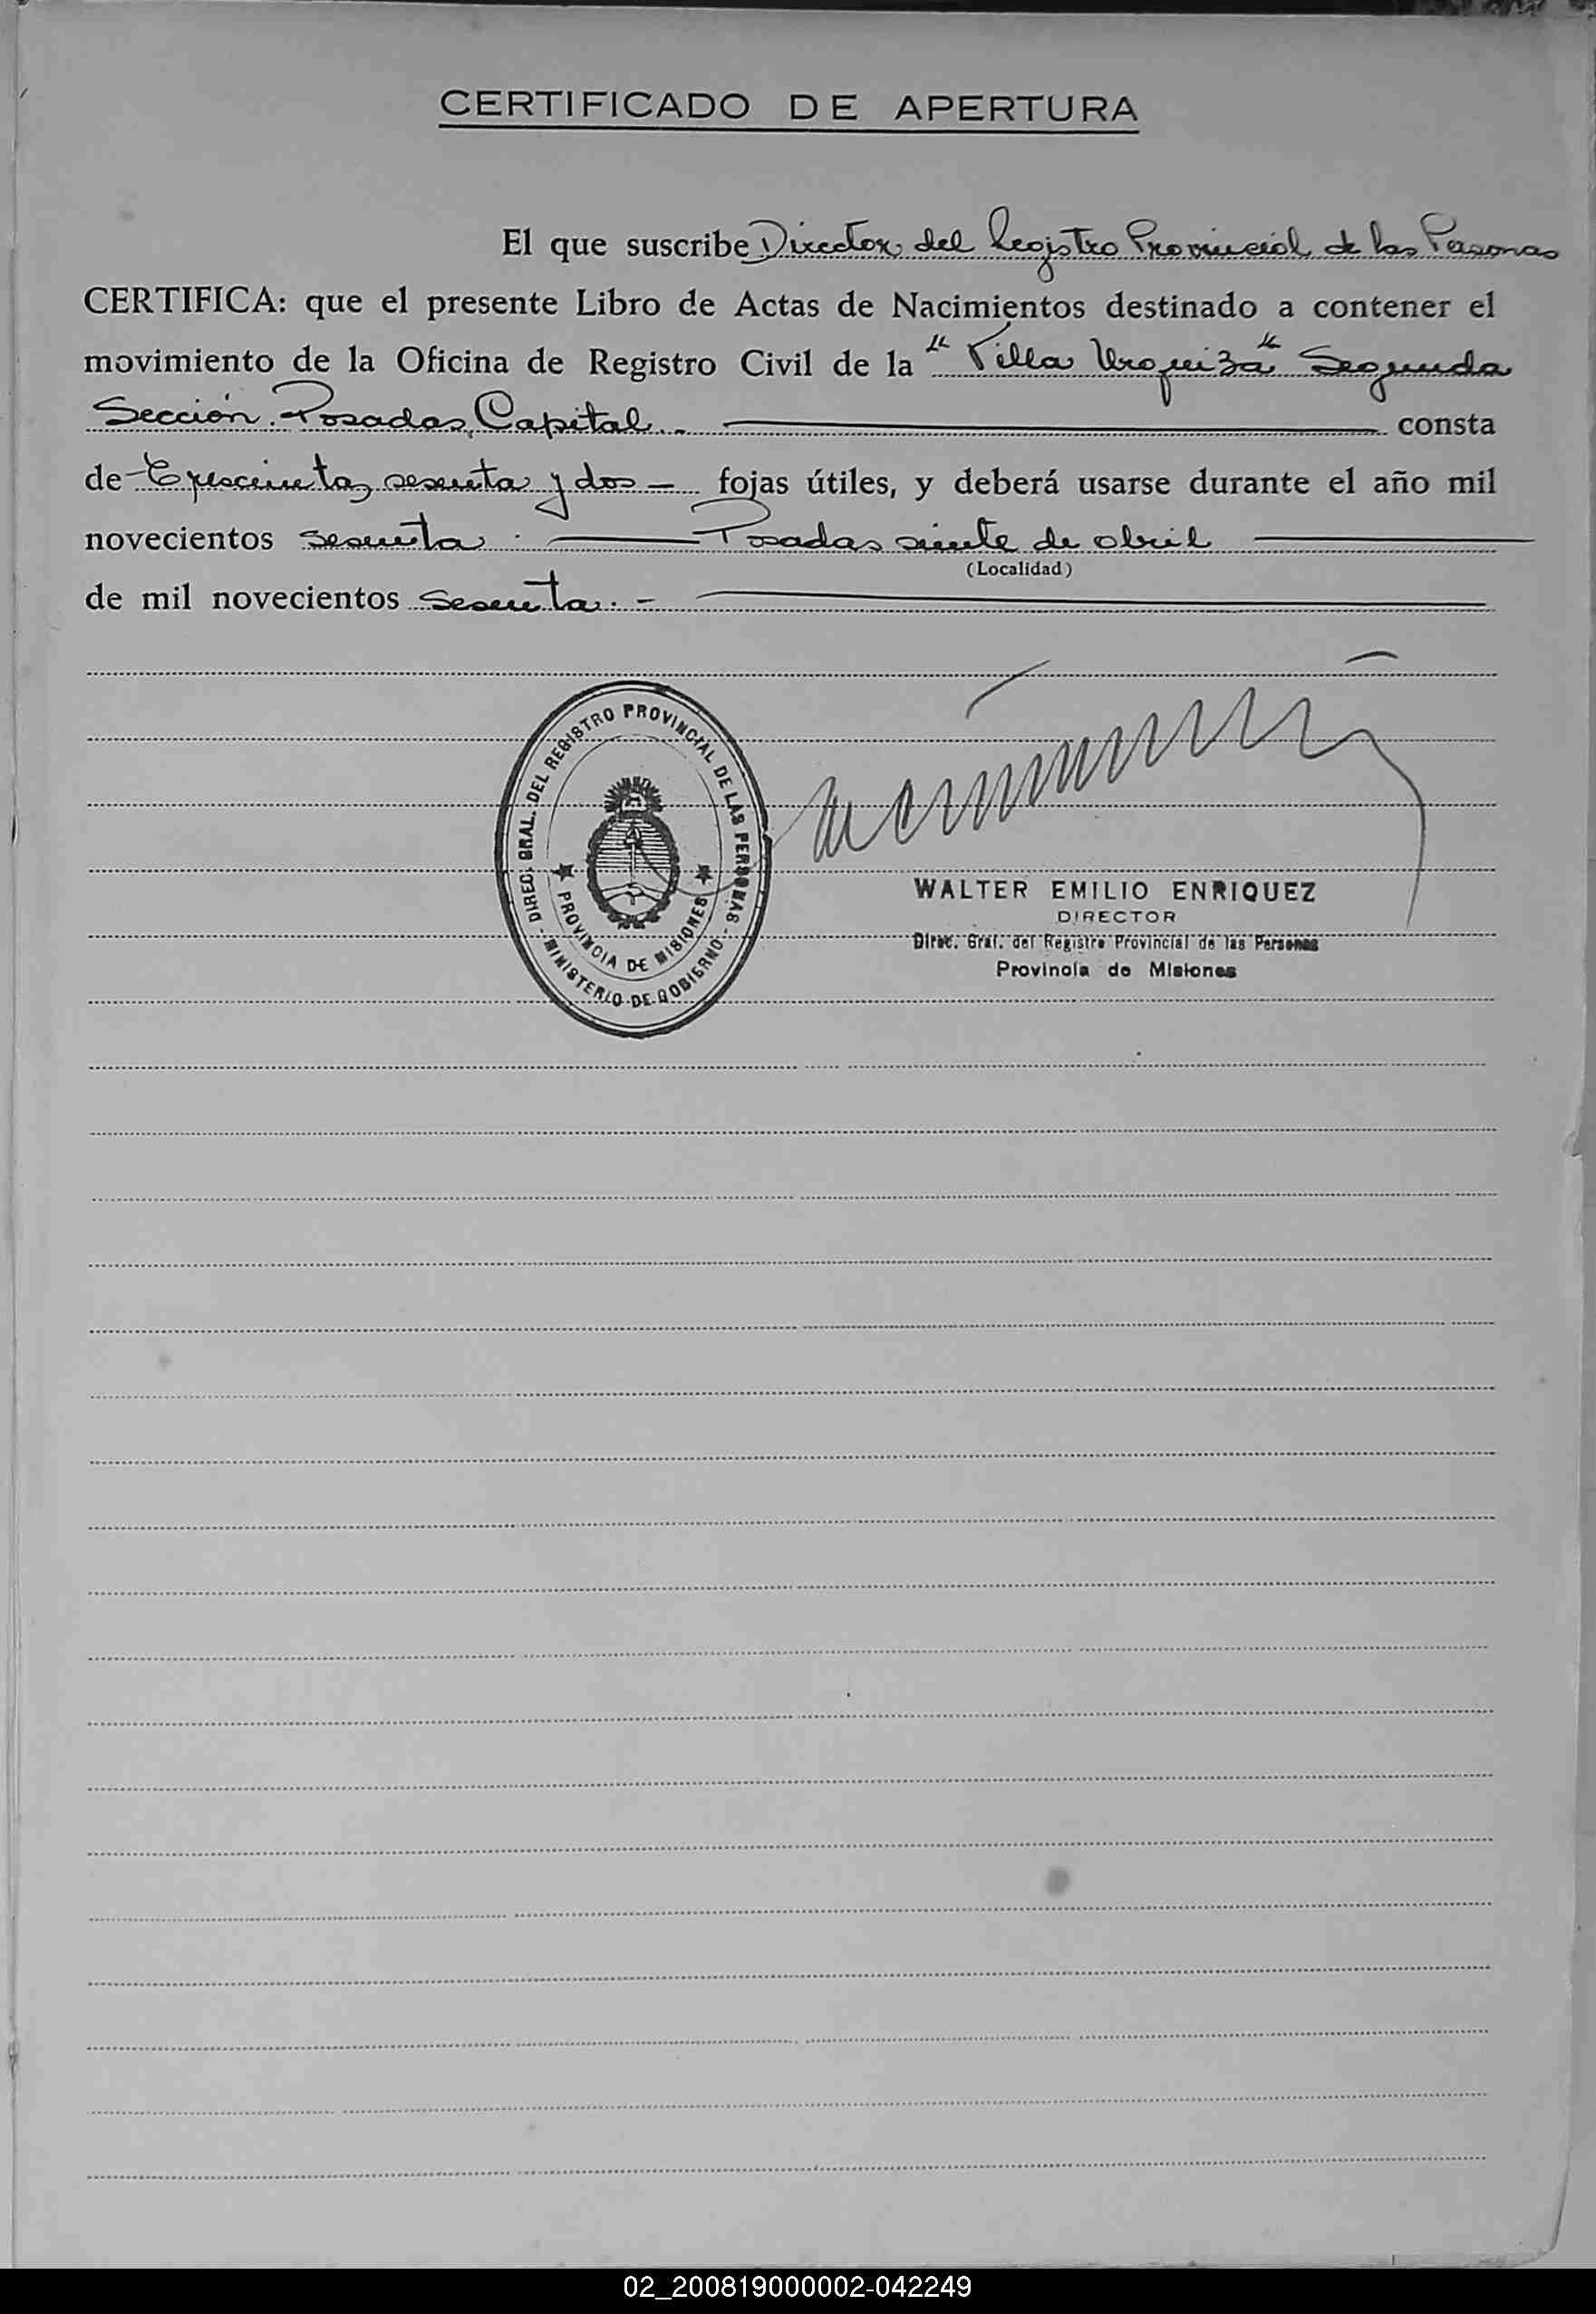 CERTIFICADO DE APERTURA
El que suscribe Director del Registro Provincial de las Personas
CERTIFICA: que el presente Libro de Actas de Nacimientos destinado a contener el
movimiento de la Oficina de Registro Civil de la "Villa Urquiza" Segunda
Sección. Posadas, Capital.- consta
de Trescientas sesenta y dos — fojas útiles, y deberá usarse durante el año mil
novecientos sesenta. — Posadas de abril —
(Localidad)
de mil novecientos sesenta. -
DIREC. GRAL. DEL REGISTRO PROVINCIAL DE LAS PERSONAS
- MINISTERIO DE GOBIERNO -
PROVINCIA DE MISIONES
WALTER EMILIO ENRIQUEZ
DIRECTOR
Direc. Gral. del Registro Provincial de las Personas
Provincia de Misiones
02_200819000002-042249